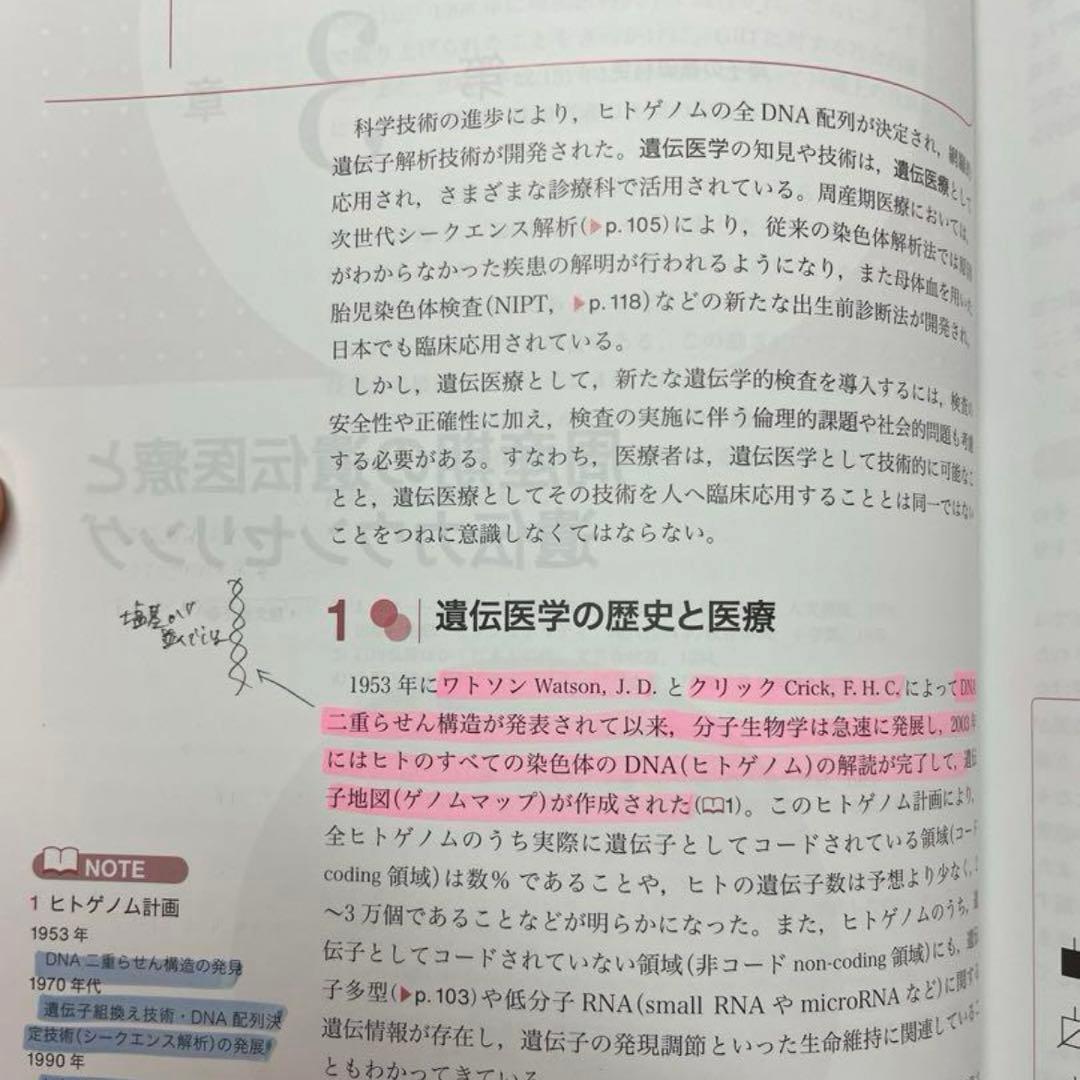 科学技術の進歩により，ヒトゲノムの全 DNA 配列が決定され，網羅的
遺伝子解析技術が開発された。遺伝医学の知見や技術は，遺伝医療として
応用され，さまざまな診療科で活用されている。周産期医療においては，
次世代シークエンス解析(▶p. 105)により，従来の染色体解析法では
がわからなかった疾患の解明が行われるようになり，また母体血を用いた
胎児染色体検査(NIPT, ▶p. 118)などの新たな出生前診断法が開発され，
日本でも臨床応用されている。
しかし，遺伝医療として，新たな遺伝学的検査を導入するには，検査の
安全性や正確性に加え，検査の実施に伴う倫理的課題や社会的問題も考慮
する必要がある。すなわち，医療者は，遺伝医学として技術的に可能なこ
とと，遺伝医療としてその技術を人へ臨床応用することとは同一ではない
ことをつねに意識しなくてはならない。
塩基が
並んでいる
1 遺伝医学の歴史と医療
1953 年にワトソン Watson, J. D. とクリック Crick, F. H. C. によって DNA
二重らせん構造が発表されて以来，分子生物学は急速に発展し，2003 年
にはヒトのすべての染色体の DNA(ヒトゲノム)の解読が完了して，遺伝
子地図(ゲノムマップ)が作成された(1)。このヒトゲノム計画により，
全ヒトゲノムのうち実際に遺伝子としてコードされている領域(コード
coding 領域)は数% であることや，ヒトの遺伝子数は予想より少なく，2
〜3 万個であることなどが明らかになった。また，ヒトゲノムのうち，遺
伝子としてコードされていない領域(非コード non-coding 領域)にも，遺伝
子多型(▶p. 103)や低分子 RNA(small RNA や microRNA など)に関する
遺伝情報が存在し，遺伝子の発現調節といった生命維持に関連しているこ
ともわかってきている
NOTE
1 ヒトゲノム計画
1953 年
DNA 二重らせん構造の発見
1970 年代
遺伝子組換え技術・DNA 配列決
定技術(シークエンス解析)の発展
1990 年